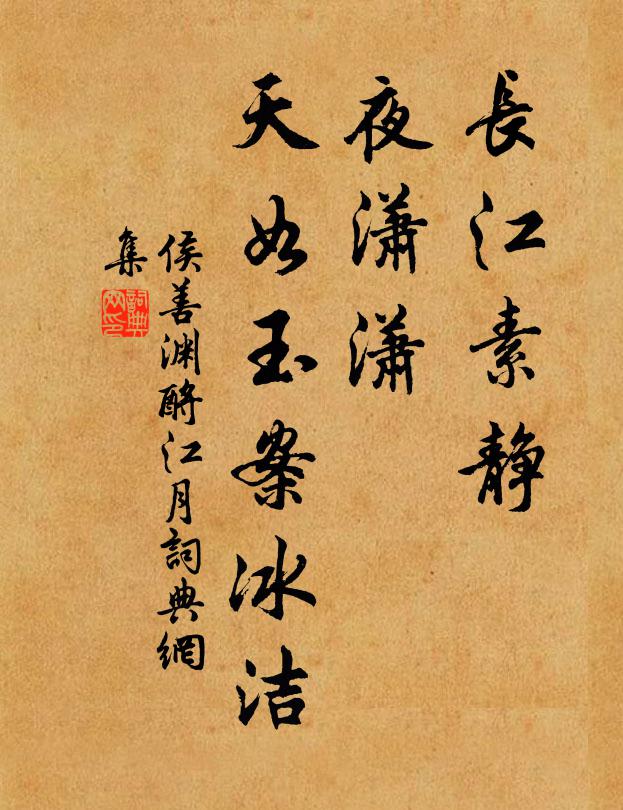 長江素静
夜瀟瀟
天如玉案冰洁
侯善渊酹江月詞典網
集
詞典
网印